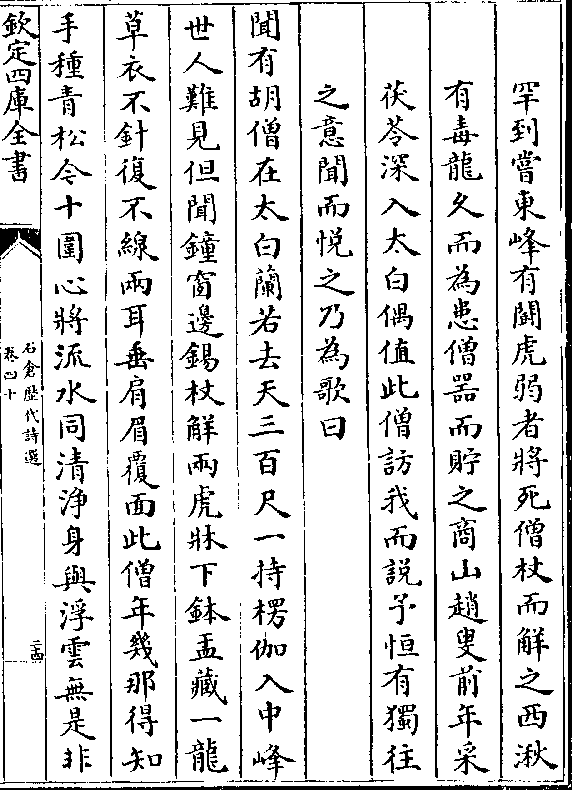 罕到嘗東峰有鬬虎弱者將死僧杖而解之西湫
有毒龍久而為患僧器而貯之商山趙叟前年采
茯苓深入太白偶值此僧訪我而說予恒有獨往
之意聞而悦之乃為歌曰
聞有胡僧在太白蘭若去天三百尺一持楞伽入中峰
世人難見但聞鐘窗邊錫杖解兩虎牀下鉢盂藏一龍
草衣不針復不線兩耳垂肩眉覆面此僧年幾那得知
手種青松今十圍心將流水同清淨身與浮雲無是非
欽定四庫全書
石倉歴代詩選
卷四十
二十四